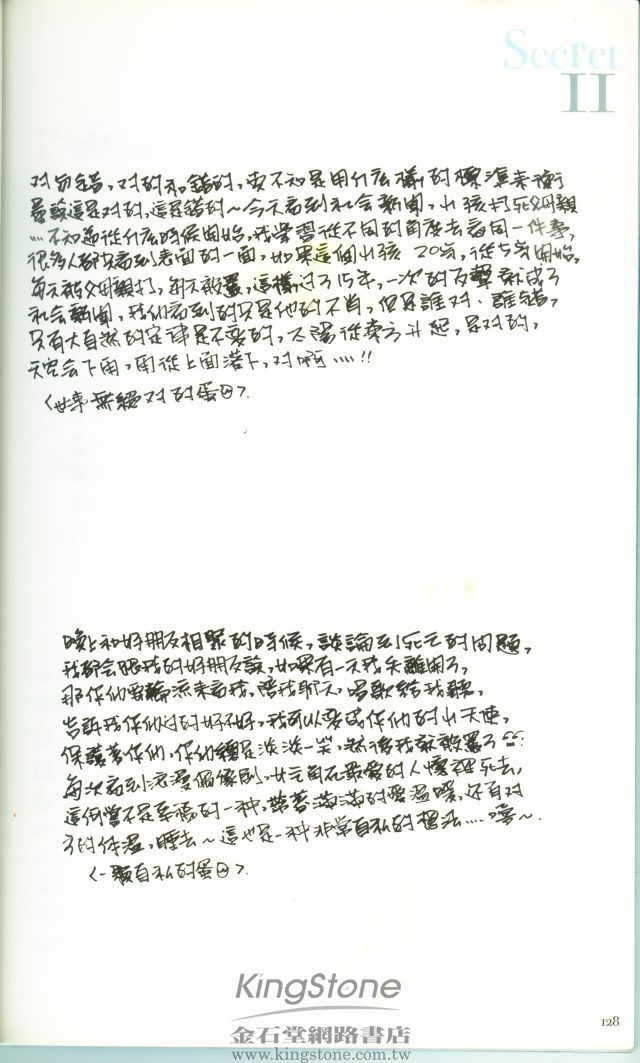 Secret
II
对与錯，对的和錯的，要不知是用什么樣的標準來衡
量說這是对的，這是錯的～今天看到社会新聞，小孩打死父母親
….不知道從什么時候開始，我學習從不同的角度去看同一件事，
很多人都只看到表面的一面，如果這個小孩 20岁，從5岁開始，
每天被父母親打，每天被罵，這樣过了15年，一次的反擊就成了
社会新聞，我們看到的只是他的不肖，但是誰对、誰錯，
只有大自然的定律是不变的，太陽從東方升起，是对的，
天空会下雨，雨從上面落下，对啊….!!
〈世事無絕对的蛋〉.
晚上和好朋友相聚的時候，談論到死亡的問題，
我都会跟我的好朋友說，如果有一天我先離開了，
那你們要輪流來看我，陪我聊天，唱歌給我聽，
告訴我你們过的好不好，我可以变成你們的小天使，
保護著你們，你們總是淡淡一笑，然後我就被罵了
每次看到浪漫偶像劇，女主角在最愛的人懷裡死去，
這何嘗不是幸福的一种，帶著滿滿的愛温暖，还有对
方的体温，睡去～這也是一种非常自私的想法….嘻～.
〈一顆自私的蛋〉.
KingStone
金石堂網路書店
www.kingstone.com.tw
128